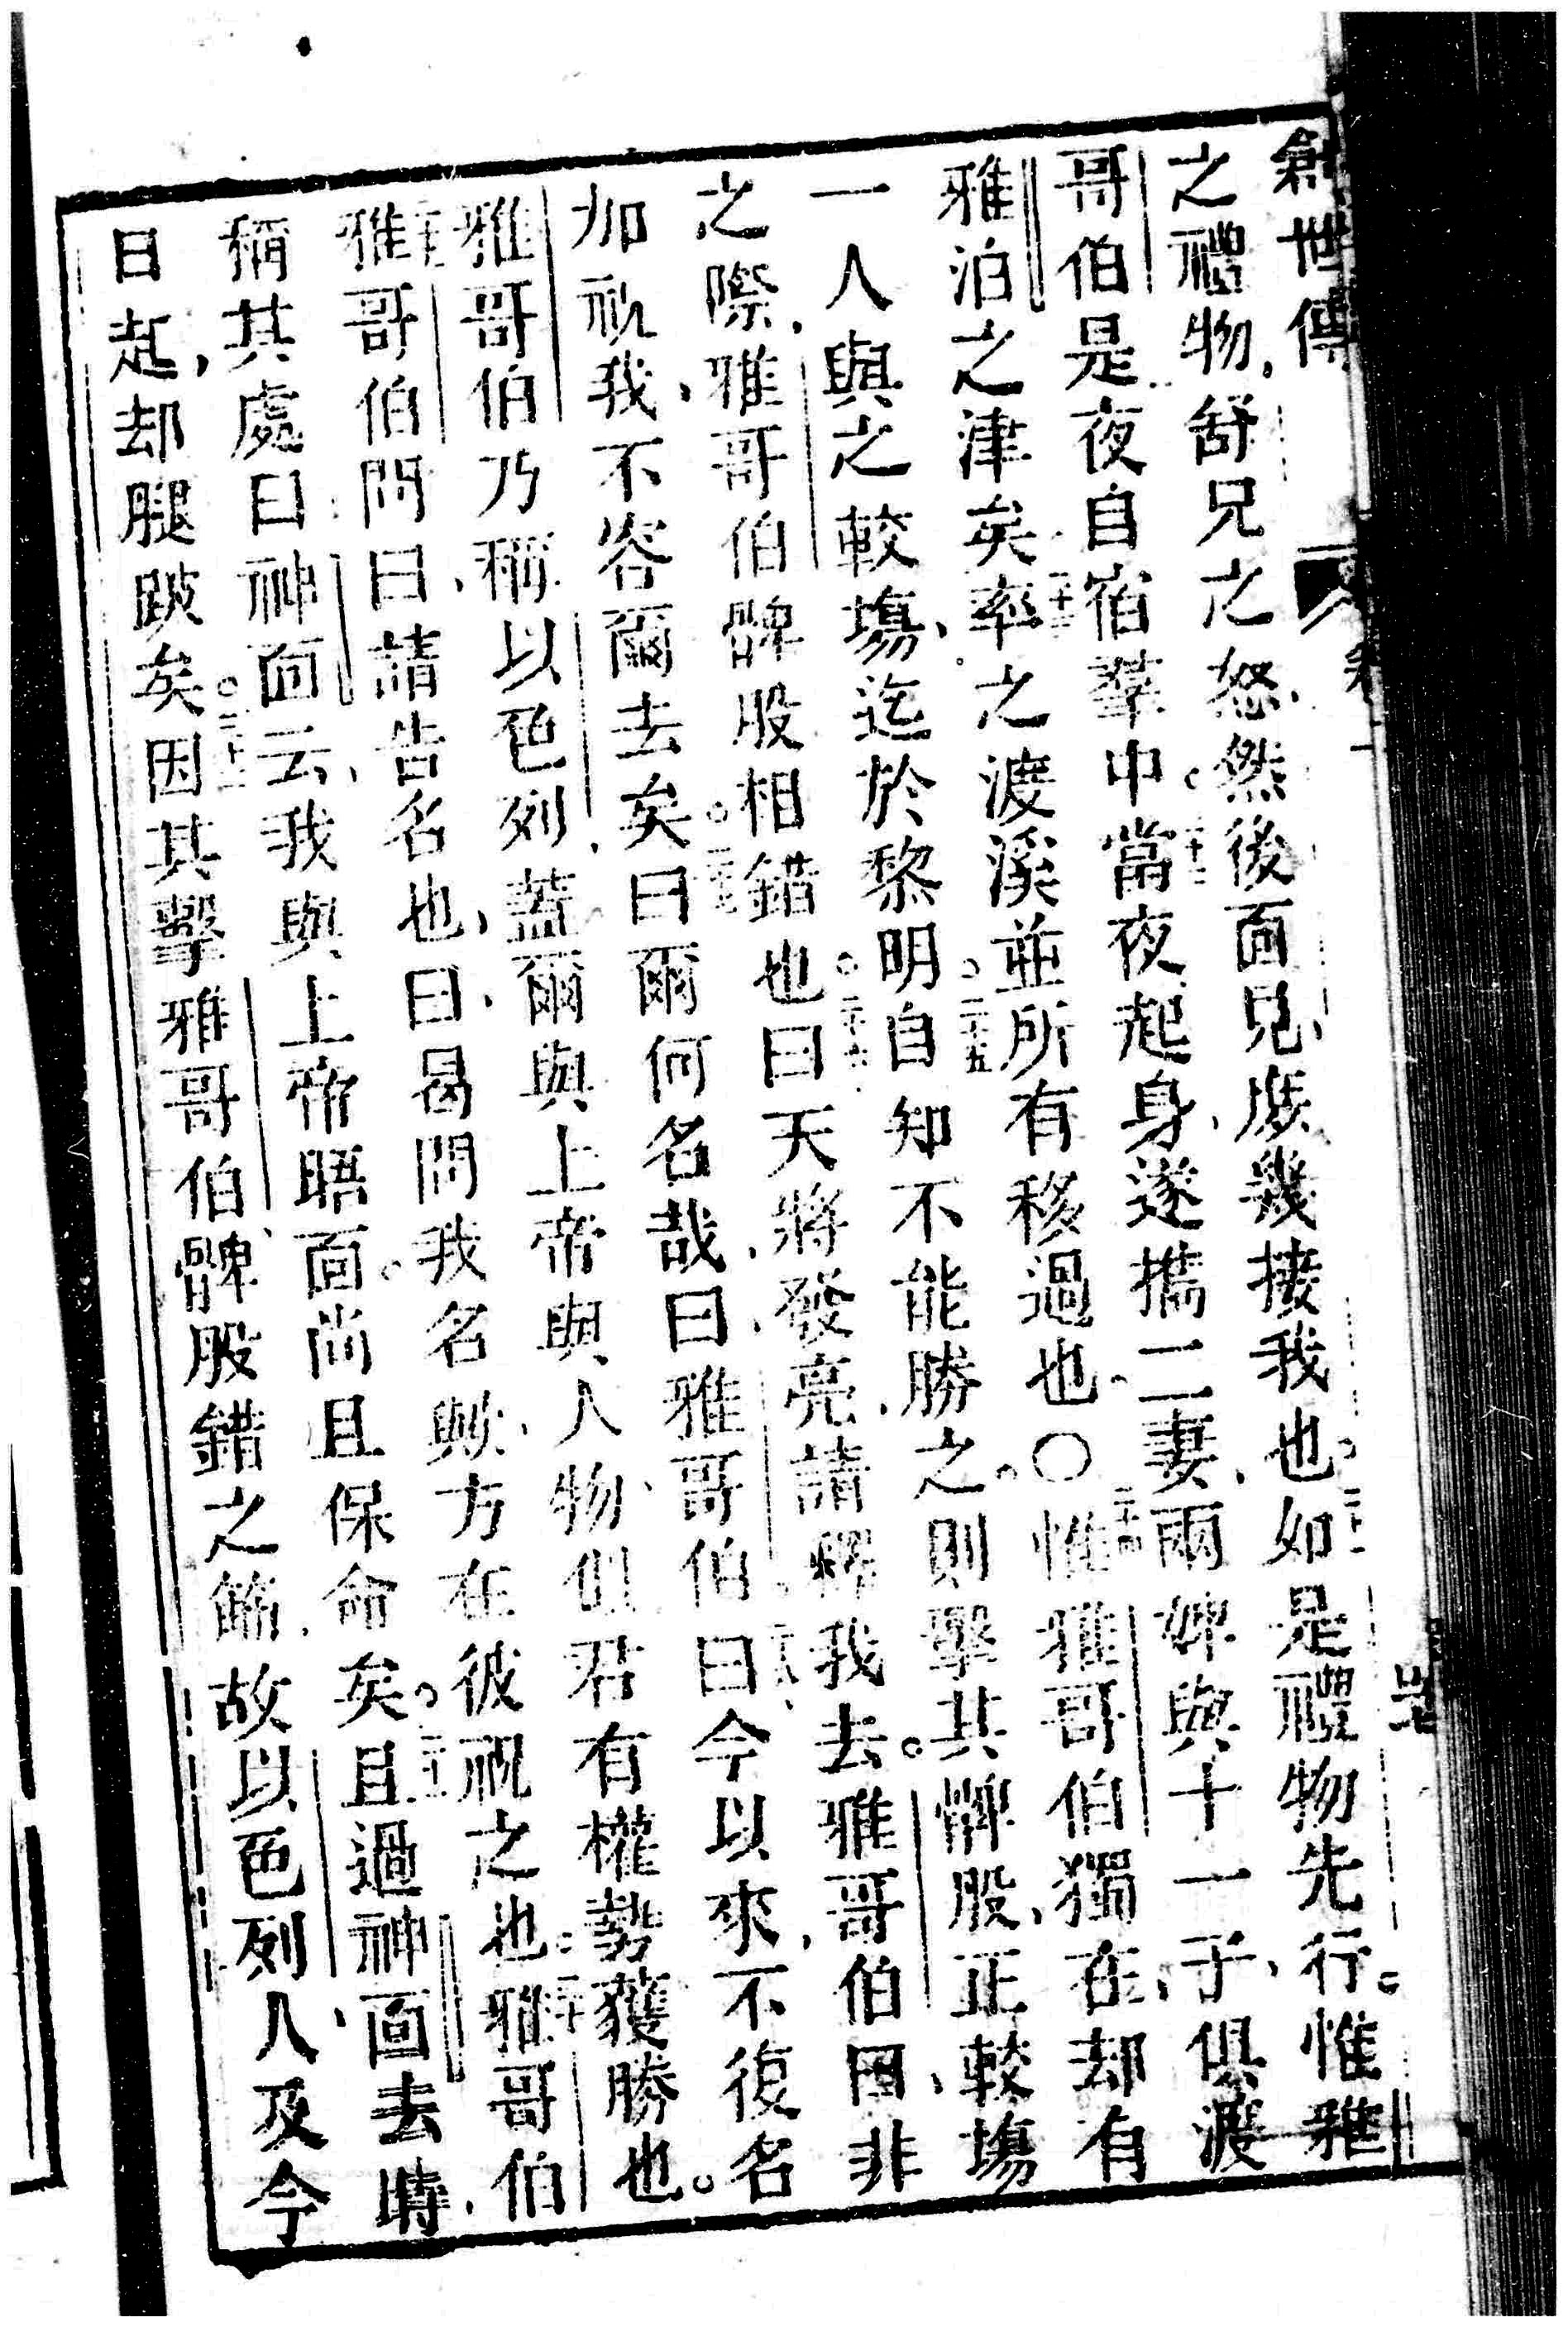 創世傳
之禮物、舒兄之怒、然後面見、庶幾接我也。如是禮物先行。惟雅
哥伯是夜自宿羣中。當夜起身、遂攜二妻、兩婢與十一子、俱渡
雅泊之津矣。率之渡溪並所有移過也。○惟雅哥伯獨在、却有
一人與之較塲、迄於黎明。二十五自知不能勝之。則擊其髀股、正較塲
之際、雅哥伯髀股相錯也。曰天將發亮、請釋我去。雅哥伯曰、非
加祝我、不容爾去矣。曰爾何名哉、曰、雅哥伯。曰今以來、不復名
雅哥伯乃稱以色列、蓋爾與上帝與人物、似君有權勢獲勝也。
雅哥伯問曰、請告名也、曰、曷問我名歟、方在彼祝之也。雅哥伯
稱其處曰神面云、我與上帝晤面。尚且保命矣。且過神面去時、
日起、却腿跛矣。因其擊雅哥伯髀股錯之筋、故以色列人、及今